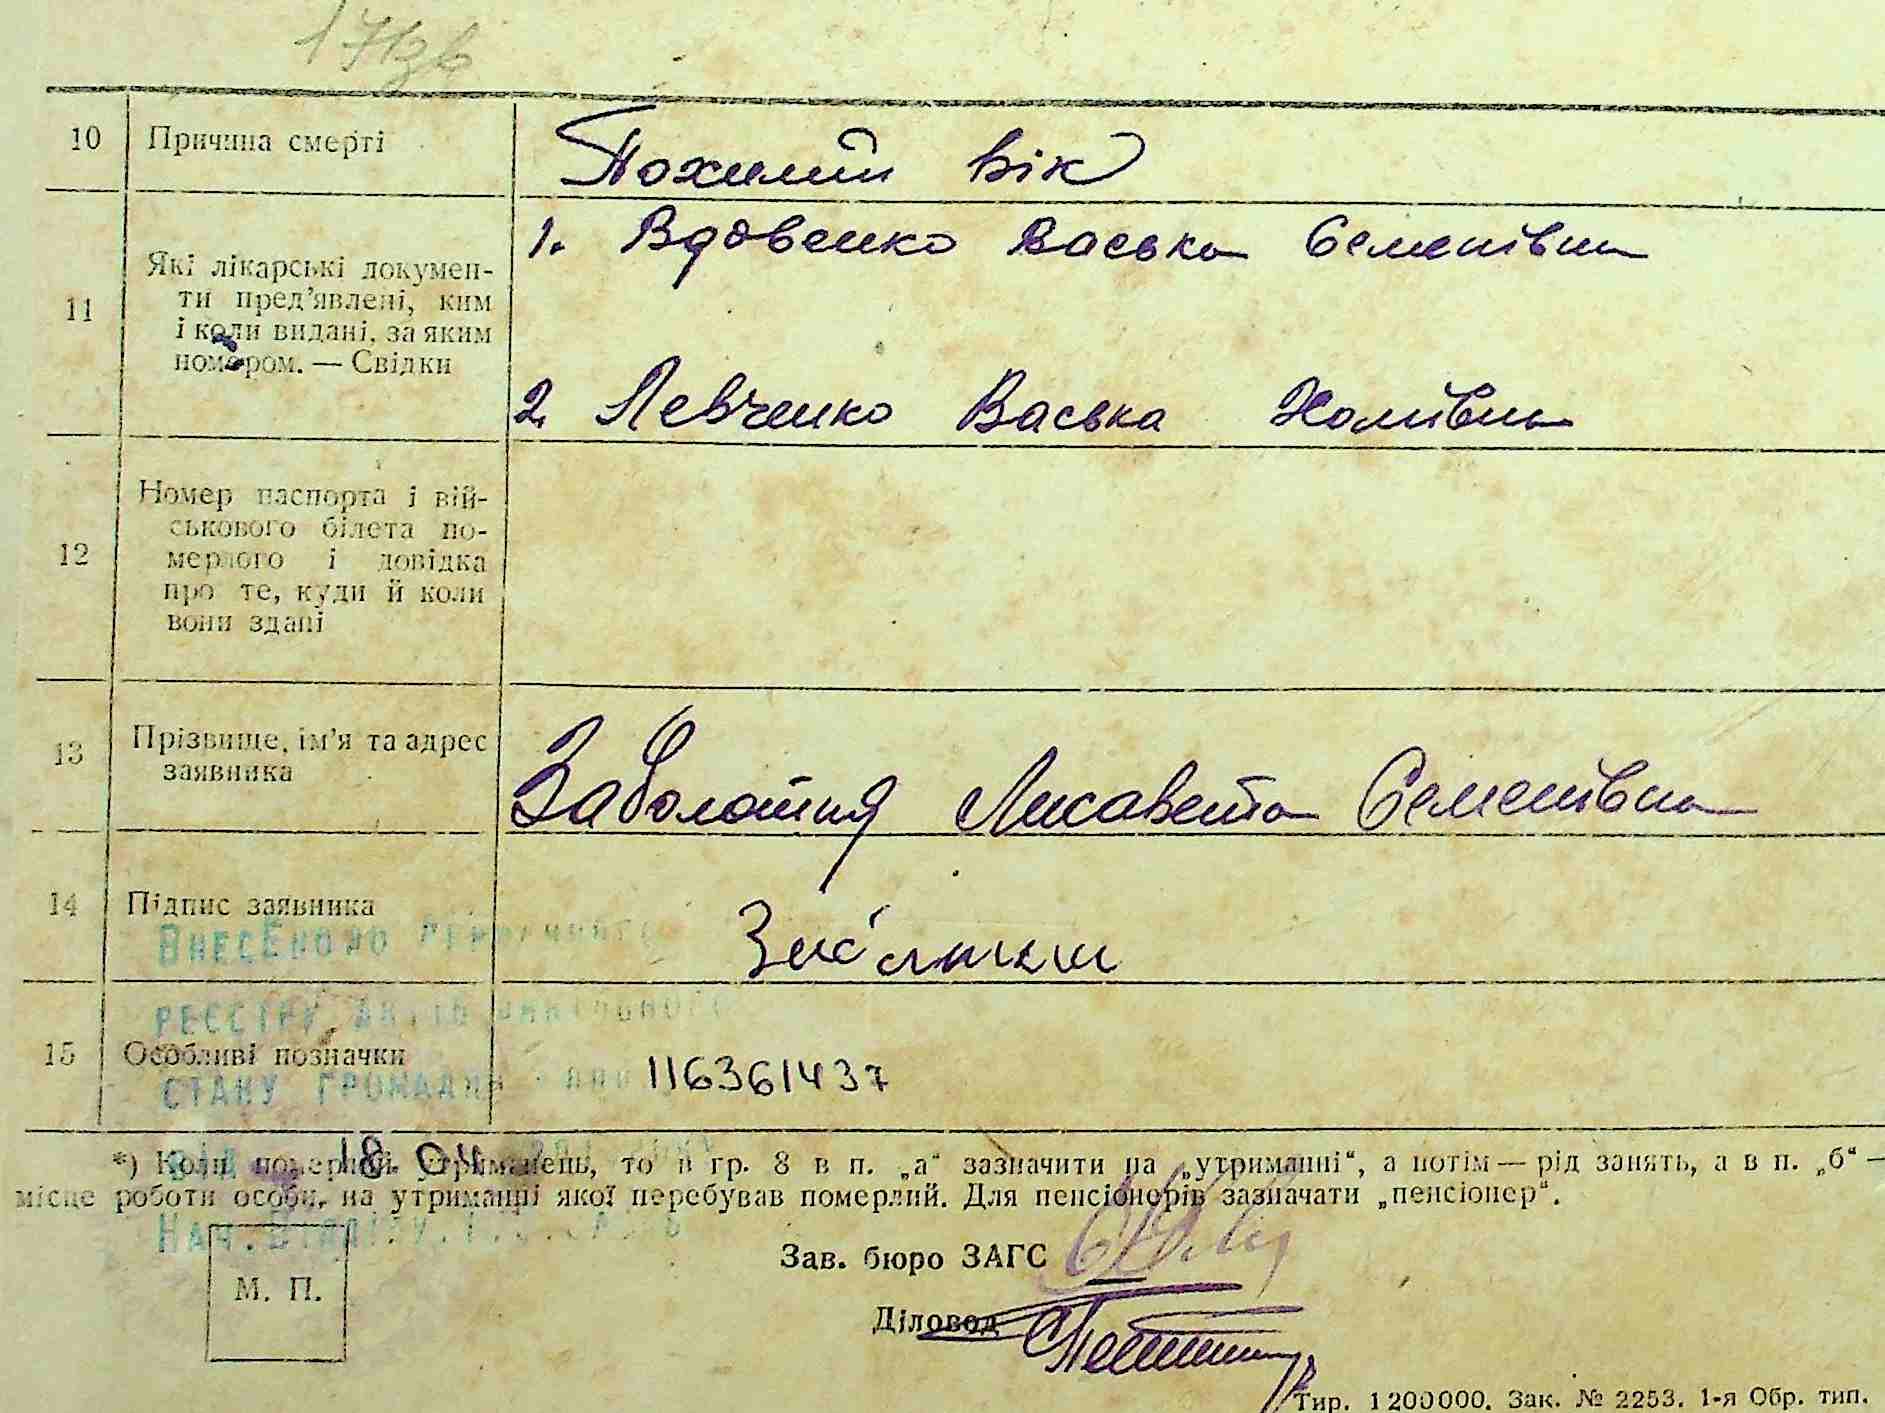 10 Причина смерті Похилий вік
11 Які лікарські докумен-
ти пред'явлені, ким
і коли видані, за яким
номером. — Свідки
1. Вдовенко Васька Семенівна
2. Левченко Васька Хомівна
12 Номер паспорта і вій-
ськового білета по-
мерлого і довідка
про те, куди й коли
вони здані
13 Прізвище, ім'я та адрес
заявника
Заболотня Лисавета Семенівна
14 Підпис заявника
ВНЕСЕНО ДО
РЕЄСТРУ АКТІВ ЦИВІЛЬНОГО
15 Особливі позначки 116361437
СТАНУ ГРОМАДЯН
ВІД 18.04
*) Коли померлий утриманець, то в гр. 8 в п. „а“ зазначити на „утриманні“, а потім — рід занять, а в п. „б“ —
місце роботи особи, на утриманні якої перебував померлий. Для пенсіонерів зазначати „пенсіонер“.
НАЧ. ВІДДІЛУ
Зав. бюро ЗАГС
М. П.
Діловод
Тир. 1200000. Зак. № 2253. 1-я Обр. тип.